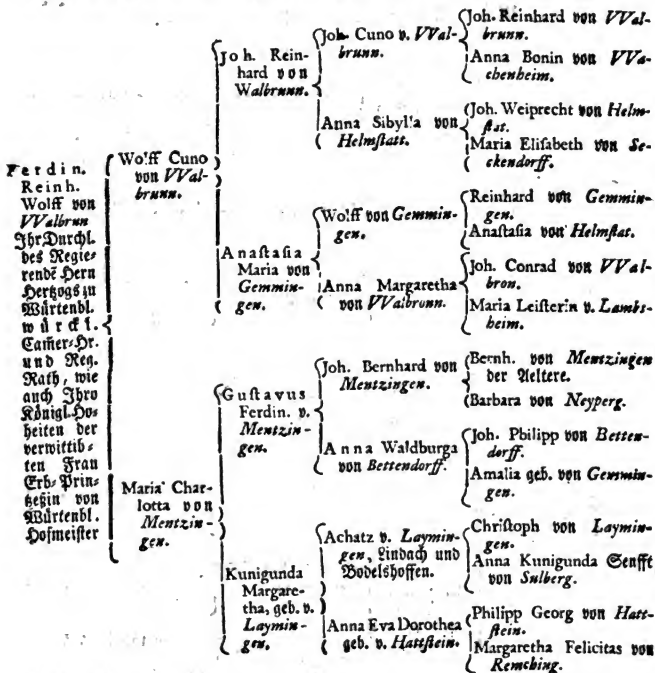 Ferdin.
Reinh.
Wolff von
VValbrun
Ihr Durchl.
des Regie-
rendē Hern
Hertzogs zu
Würtenbl.
würckl.
Cam̃er-Hr.
und Reg.
Rath, wie
auch Ihro
Königl. Ho-
heiten der
verwittib-
ten Frau
Erb-Prin-
tzeßin von
Würtenbl.
Hofmeister
Wolff Cuno
von VVal-
brunn.
Maria Char-
lotta von
Mentzin-
gen.
Joh. Rein-
hard von
Walbrunn.
Anastasia
Maria von
Gemmin-
gen.
Gustavus
Ferdin. v.
Mentzin-
gen.
Kunigunda
Margare-
tha, geb. v.
Laymin-
gen.
Joh. Cuno v. VVal-
brunn.
Anna Sibylla von
Helmstatt.
Wolff von Gemmin-
gen.
Anna Margaretha
von VValbronn.
Joh. Bernhard von
Mentzingen.
Anna Waldburga
von Bettendorff.
Achatz v. Laymin-
gen, Lindach und
Bodelshoffen.
Anna Eva Dorothea
geb. v. Hattstein.
Joh. Reinhard von VVal-
brunn.
Anna Bonin von VVa-
chenheim.
Joh. Weiprecht von Helm-
stat.
Maria Elisabeth von Se-
ckendorff.
Reinhard von Gemmin-
gen.
Anastasia von Helmstat.
Joh. Conrad von VVal-
bron.
Maria Leisterin v. Lambs-
heim.
Bernh. von Mentzingen
der Aeltere.
Barbara von Neyperg.
Joh. Philipp von Betten-
dorff.
Amalia geb. von Gemmin-
gen.
Christoph von Laymin-
gen.
Anna Kunigunda Senfft
von Sulberg.
Philipp Georg von Hatt-
stein.
Margaretha Felicitas von
Remching.